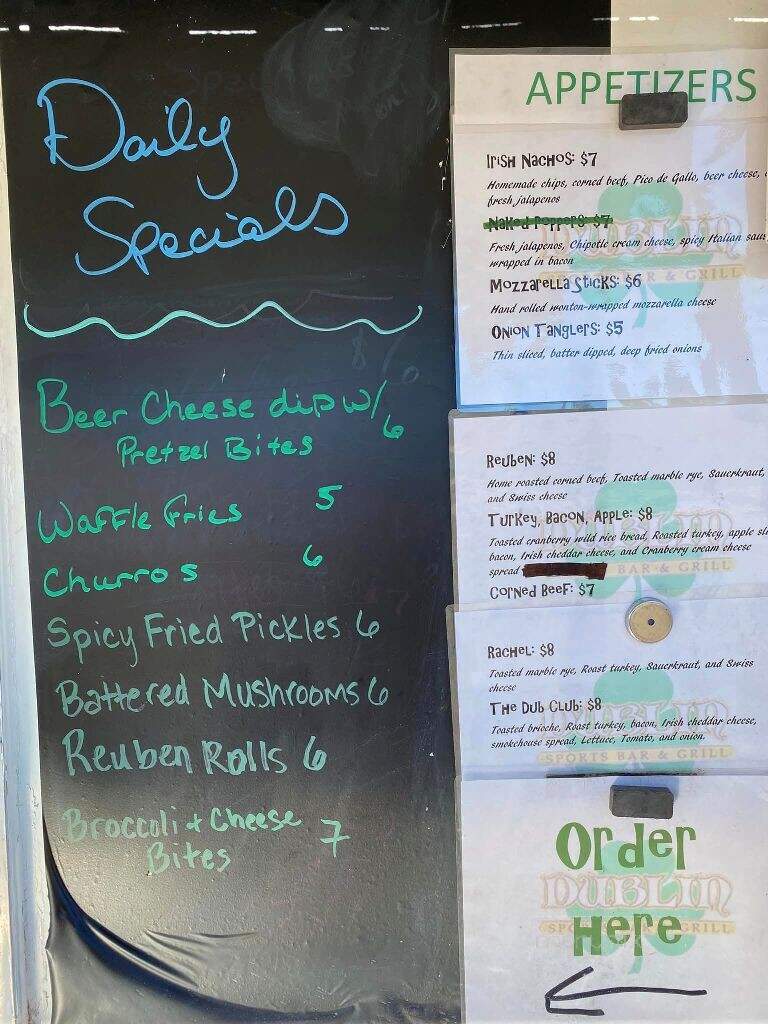 Daily
Specials
Beer Cheese dip w/ 6
Pretzel Bites
Waffle Fries 5
Churros 6
Spicy Fried Pickles 6
Battered Mushrooms 6
Reuben Rolls 6
Broccoli + Cheese
Bites 7
APPETIZERS
Irish Nachos: $7
Homemade chips, corned beef, Pico de Gallo, beer cheese,
fresh jalapenos
Naked Poppers: $7
Fresh jalapenos, Chipotle cream cheese, spicy Italian
wrapped in bacon
Mozzarella Sticks: $6
Hand rolled wonton-wrapped mozzarella cheese
Onion Tanglers: $5
Thin sliced, batter dipped, deep fried onions
DUBLIN
SPORTS BAR & GRILL
Reuben: $8
Home roasted corned beef, Toasted marble rye, Sauerkraut,
and Swiss cheese
Turkey, Bacon, Apple: $8
Toasted cranberry wild rice bread, Roasted turkey, apple
bacon, Irish cheddar cheese, and Cranberry cream cheese
spread
Corned Beef: $7
DUBLIN
BAR & GRILL
Rachel: $8
Toasted marble rye, Roast turkey, Sauerkraut, and Swiss
cheese
The Dub Club: $8
Toasted brioche, Roast turkey, bacon, Irish cheddar cheese,
smokehouse spread, Lettuce, Tomato, and onion.
DUBLIN
SPORTS BAR & GRILL
Order
DUBLIN
Here